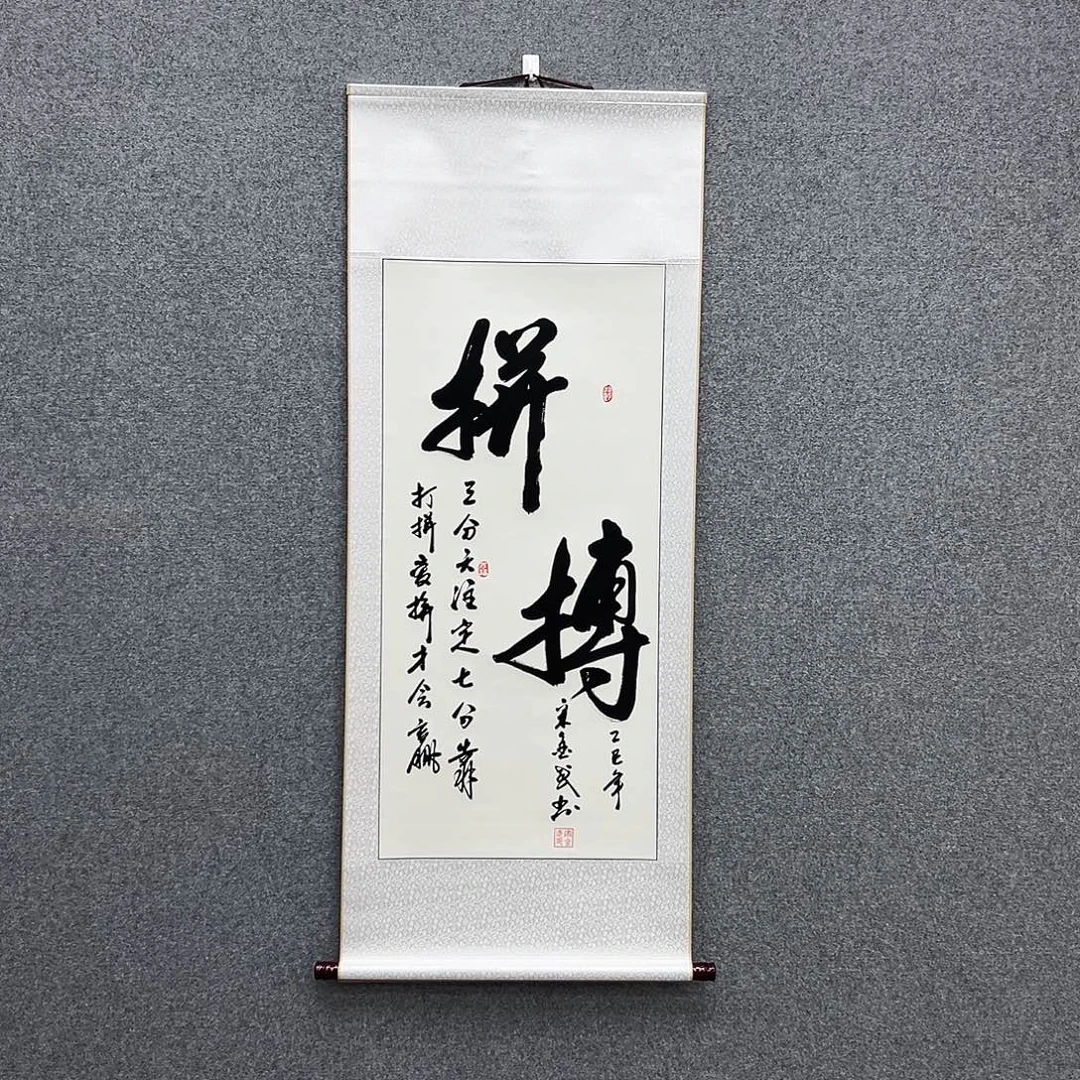 拼
搏
三分天注定七分靠
打拼爱拼才会赢
乙巳年
宋金民书